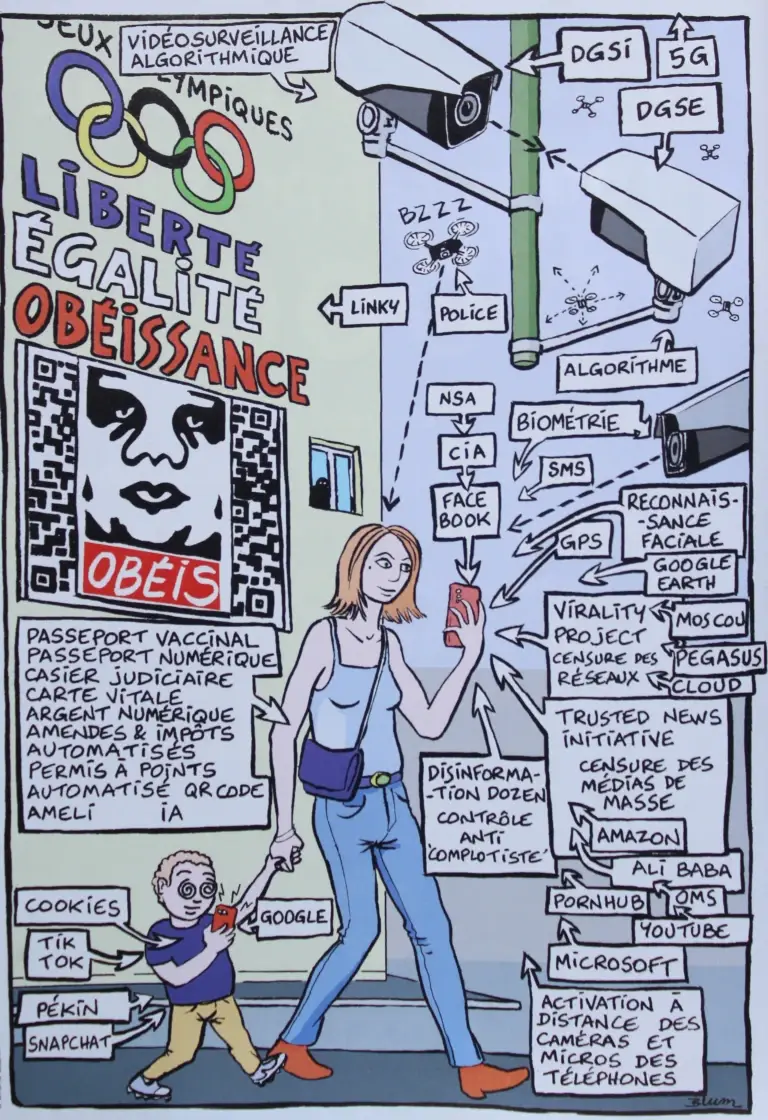 JEUX
OLYMPIQUES
VIDÉOSURVEILLANCE
ALGORITHMIQUE
DGSI
5G
DGSE
LIBERTÉ
ÉGALITÉ
OBÉISSANCE
BZZZ
LINKY
POLICE
ALGORITHME
NSA
CIA
FACE
BOOK
BIOMÉTRIE
SMS
GPS
RECONNAIS-
-SANCE
FACIALE
GOOGLE
EARTH
OBÉIS
VIRALITY
PROJECT
CENSURE DES
RÉSEAUX
MOSCOU
PEGASUS
CLOUD
PASSEPORT VACCINAL
PASSEPORT NUMÉRIQUE
CASIER JUDICIAIRE
CARTE VITALE
ARGENT NUMÉRIQUE
AMENDES & IMPÔTS
AUTOMATISÉS
PERMIS À POINTS
AUTOMATISÉ QR CODE
AMELI IA
TRUSTED NEWS
INITIATIVE
CENSURE DES
MÉDIAS DE
MASSE
DISINFORMA-
-TION DOZEN
CONTRÔLE
ANTI
'COMPLOTISTE'
AMAZON
ALI BABA
PORNHUB
OMS
YOUTUBE
MICROSOFT
COOKIES
GOOGLE
TIK
TOK
PÉKIN
SNAPCHAT
ACTIVATION À
DISTANCE DES
CAMÉRAS ET
MICROS DES
TÉLÉPHONES
Blum